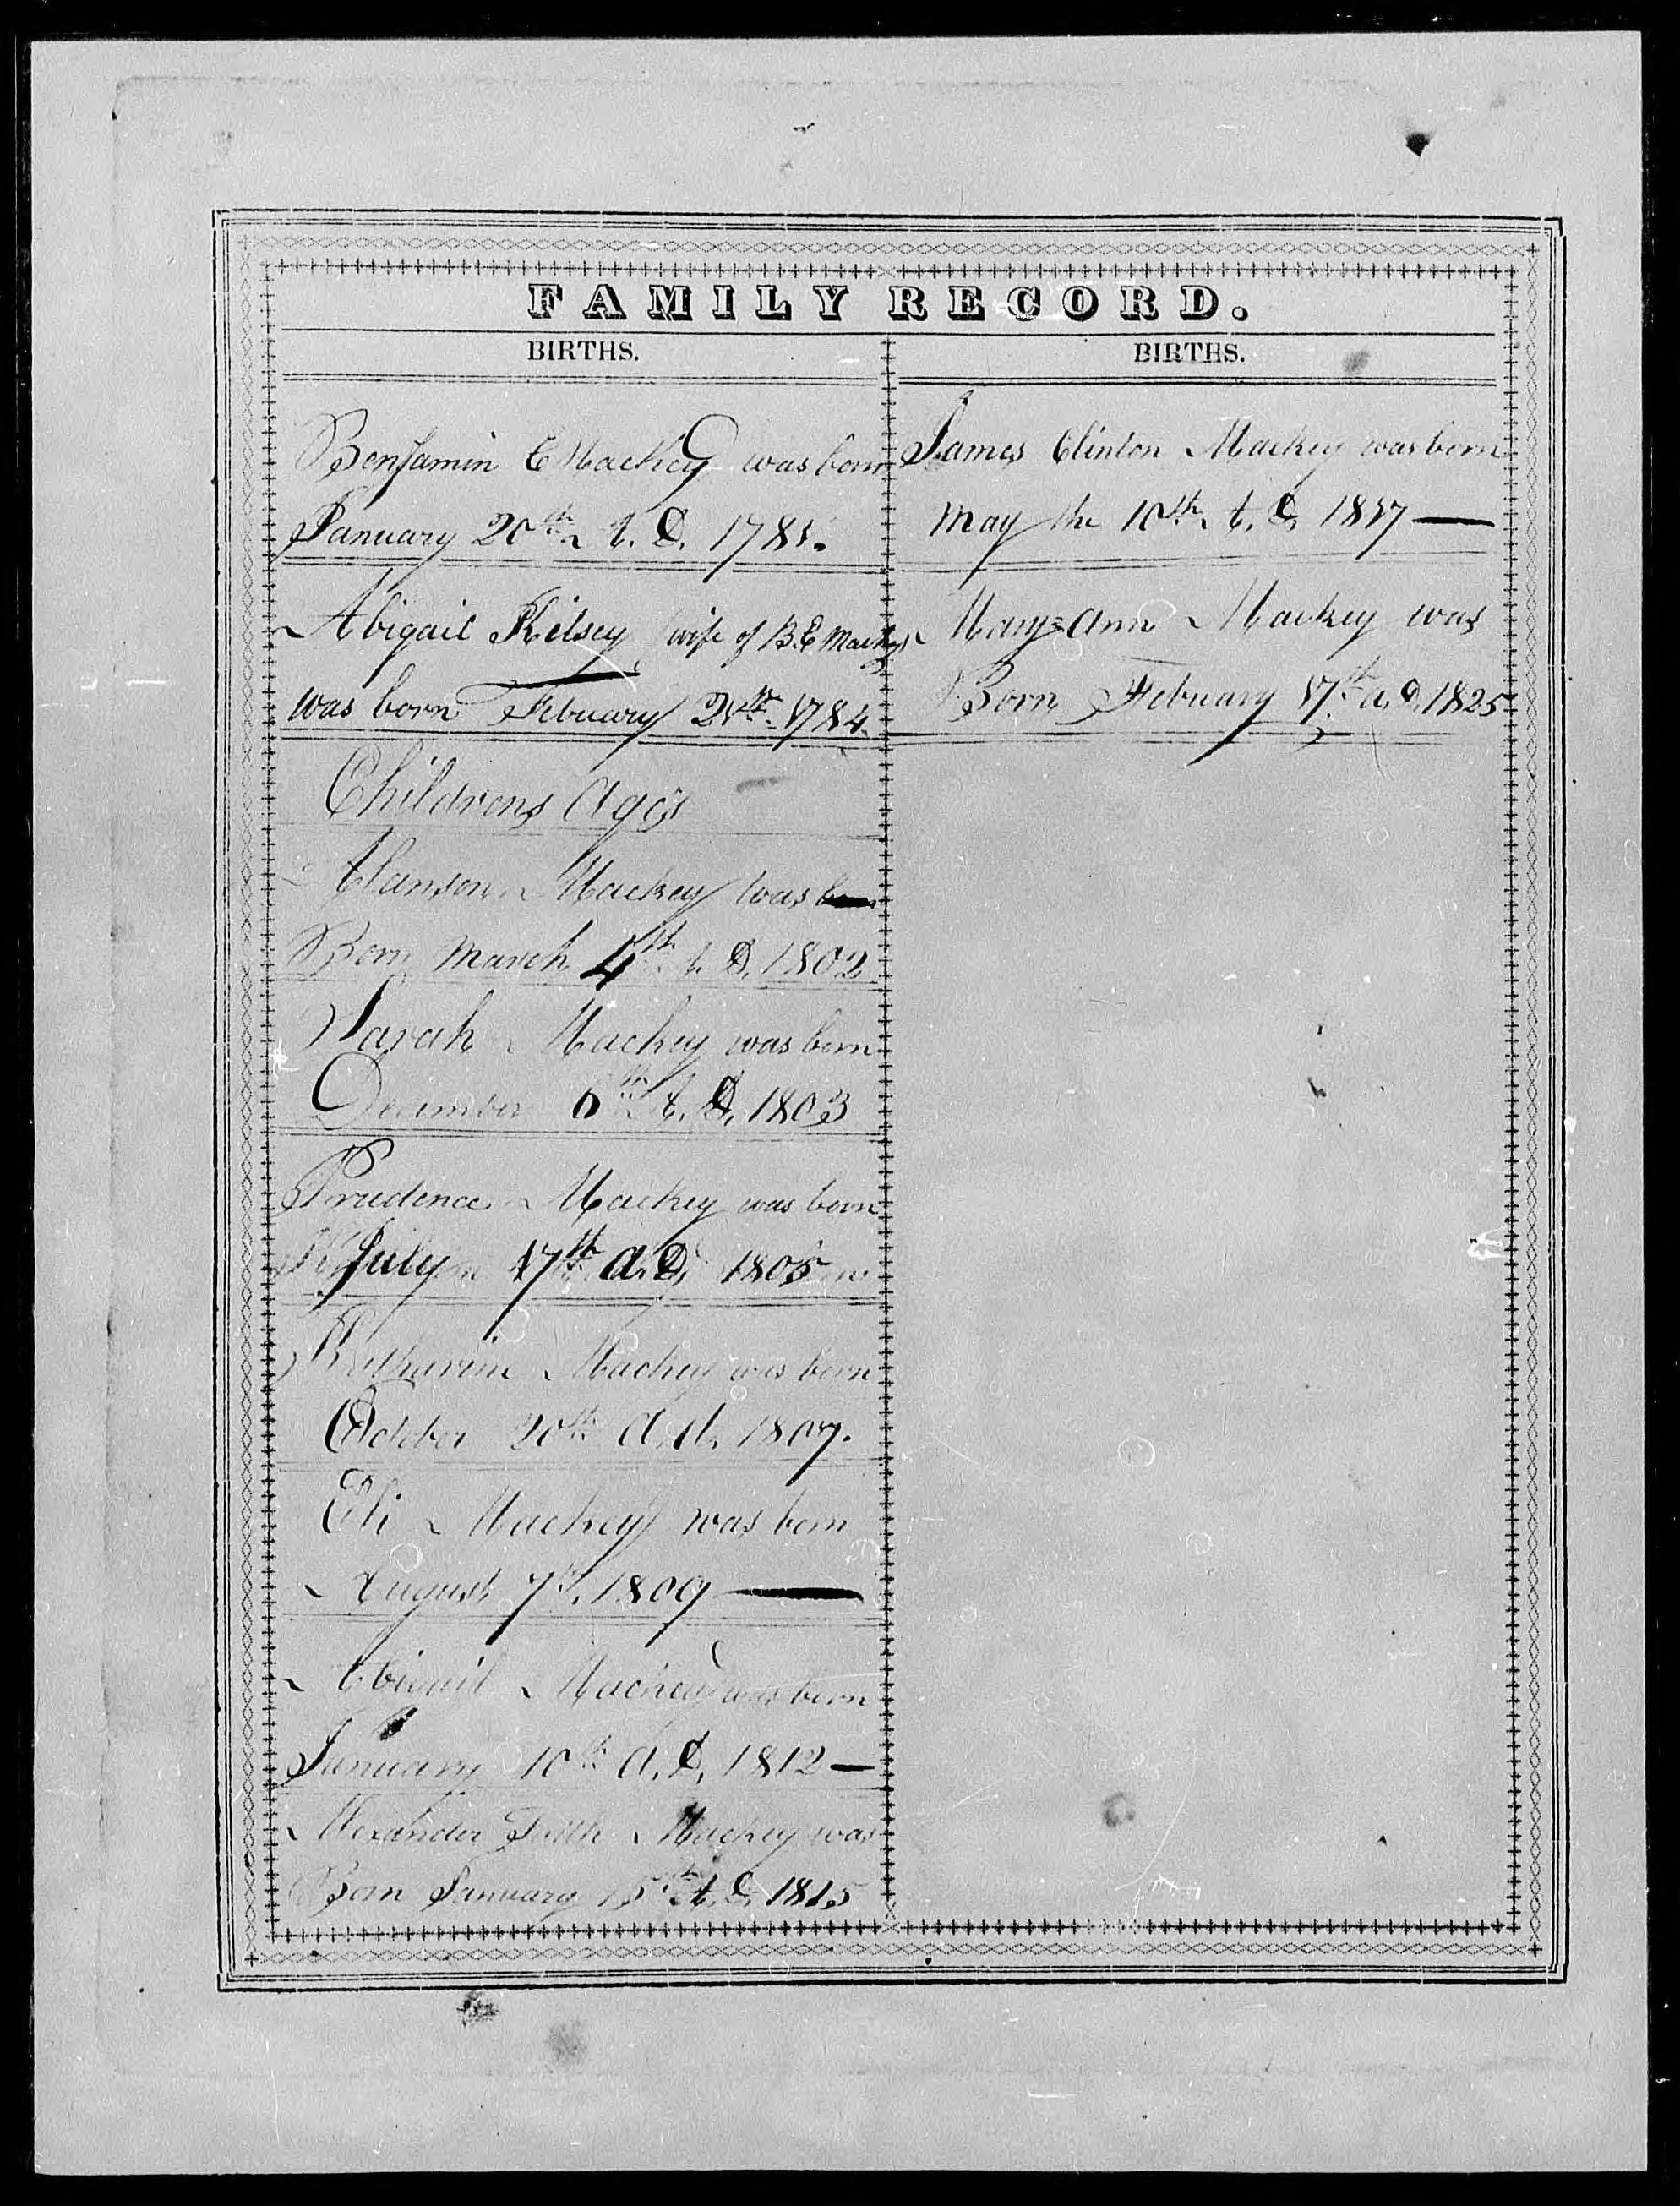 FAMILY RECORD.
BIRTHS.
Benjamin E Mackey was born
January 20th A. D. 1781.
Abigail Kelsey wife of B. E Mackey
was born February 21st 1784.
Childrens Ages
Alanson Mackey was
Born March 4th A. D. 1802
Sarah Mackey was born
December 6th A. D. 1803
Prudence Mackey was born
July 17th A. D. 1805
Katharine Mackey was born
October 20th A. d. 1807.
Eli Mackey was born
August 7th, 1809
Abigail Mackey was born
January 10th A. D. 1812
Alexander Mackey was
Born January 15th A. D. 1815
BIRTHS.
James Clinton Mackey was born
May the 10th A. D. 1817
Mary=Ann Mackey was
Born February 17th a. D. 1825